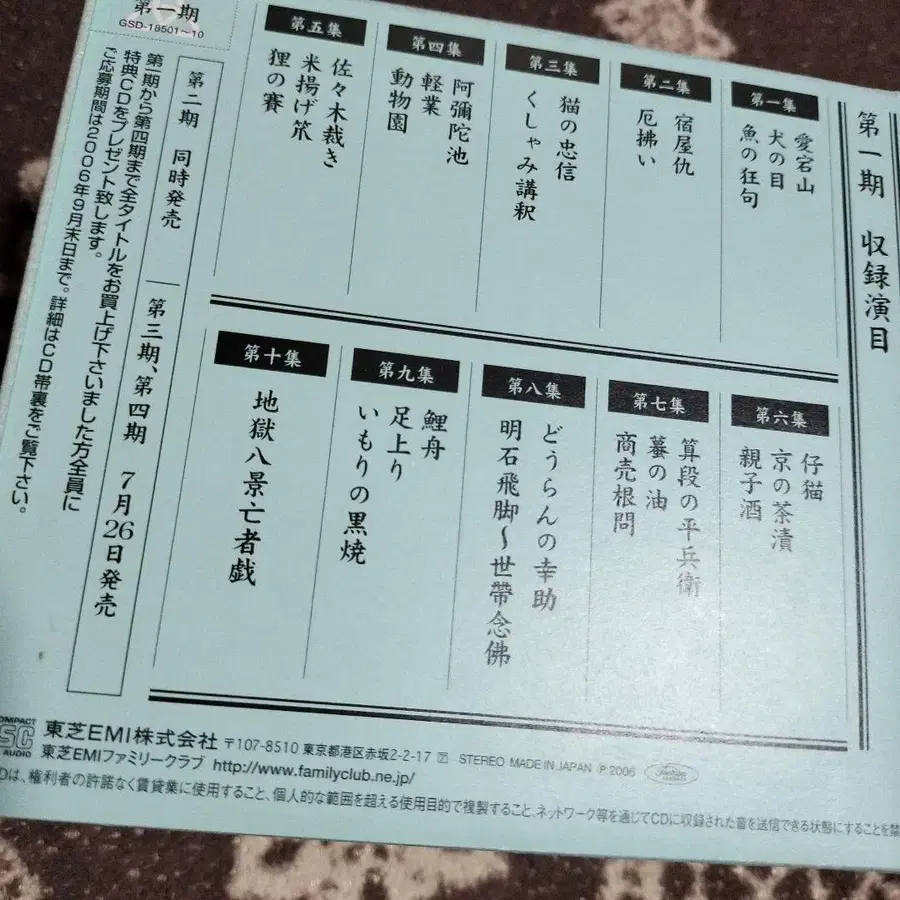 第一期 収録演目
第一集
愛宕山
犬の目
魚の狂句
第二集
宿屋仇
厄拂い
第三集
猫の忠信
くしゃみ講釈
第四集
阿彌陀池
軽業
動物園
第五集
佐々木裁き
米揚げ笊
狸の賽
第六集
仔猫
京の茶漬
親子酒
第七集
算段の平兵衛
蟇の油
商売根問
第八集
どうらんの幸助
明石飛脚〜世帯念佛
第九集
鯉舟
足上り
いもりの黒焼
第十集
地獄八景亡者戯
第一期
GSD-18501〜10
第二期 同時発売 ― 第三期、第四期 7月26日発売
第一期から第四期まで全タイトルをお買上げ下さいました方全員に
特典CDをプレゼント致します。
ご応募期間は2006年9月末日まで。詳細はCD帯裏をご覧下さい。
COMPACT
DISC
AUDIO
東芝EMI株式会社 〒107-8510 東京都港区赤坂2-2-17 STEREO MADE IN JAPAN Ⓟ2006
東芝EMIファミリークラブ http://www.familyclub.ne.jp/
Dは、権利者の許諾なく賃貸業に使用すること、個人的な範囲を超える使用目的で複製すること、ネットワーク等を通じてCDに収録された音を送信できる状態にすることを禁